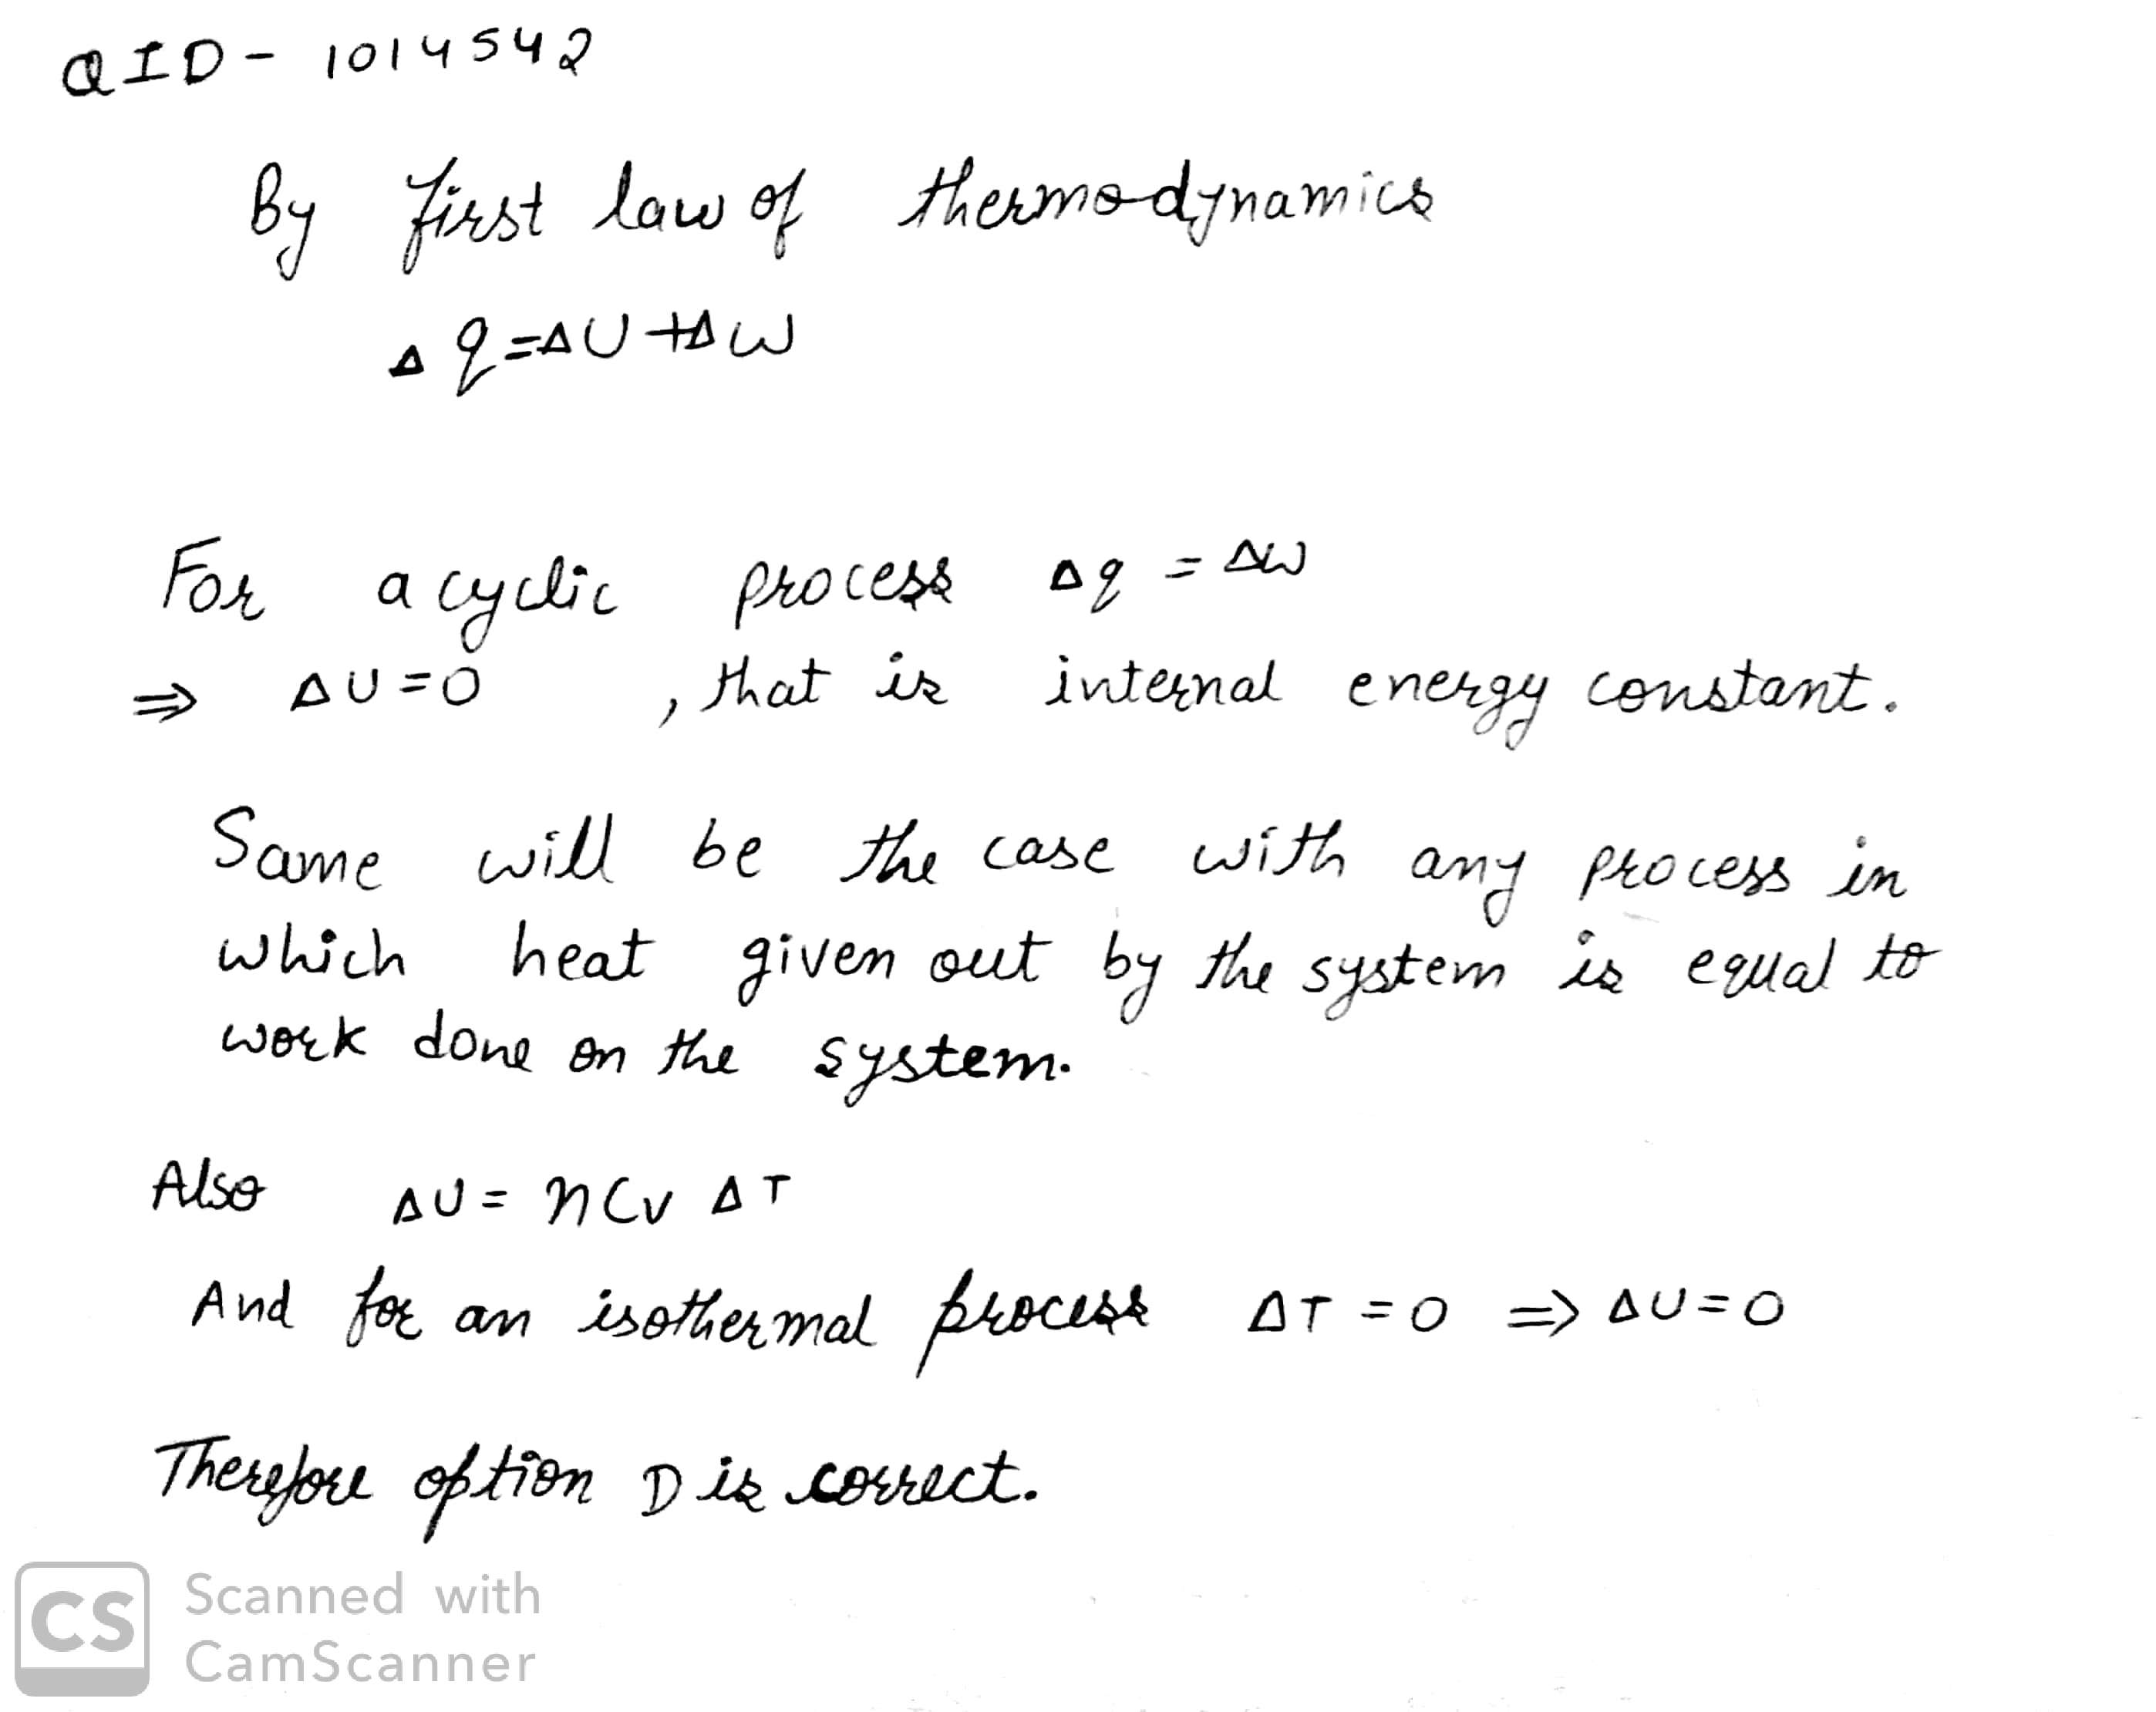 QID - 1014542
By first law of thermodynamics
Δq = ΔU + ΔW
For a cyclic process Δq = ΔW
⇒ ΔU = 0 , that is internal energy constant.
Same will be the case with any process in
which heat given out by the system is equal to
work done on the system.
Also ΔU = nCv ΔT
And for an isothermal process ΔT = 0 ⇒ ΔU = 0
Therefore option D is correct.
CS Scanned with
CamScanner